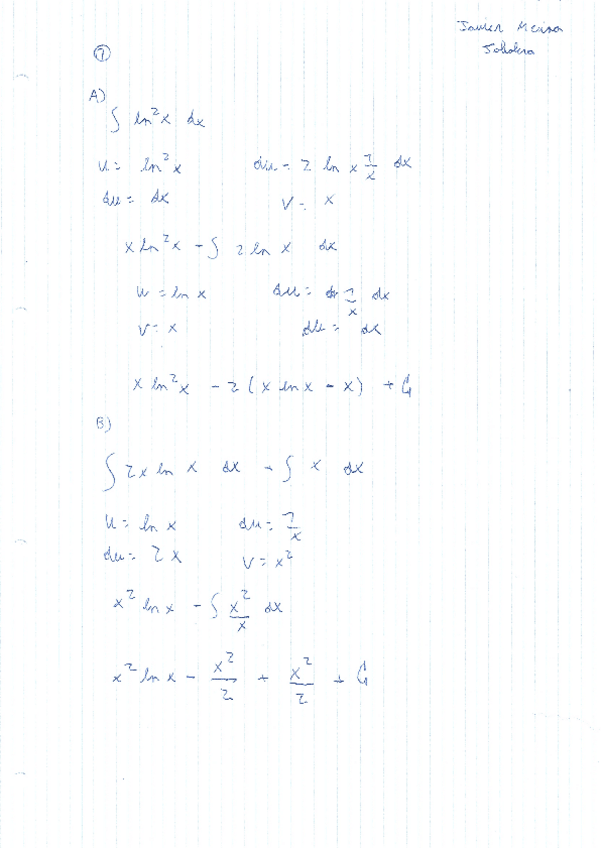 Javier
①
A)
∫ ln²x dx
u = ln²x    du = 2 ln x 1/x dx
du = dx    v = x
x ln²x - ∫ 2 ln x dx
u = ln x    du = 1/x dx
v = x    du = dx
x ln²x - 2 (x ln x - x) + C
B)
∫ 2x ln x dx + ∫ x dx
u = ln x    du = 1/x
du = 2x    v = x²
x² ln x - ∫ x²/x dx
x² ln x - x²/2 + x²/2 + C